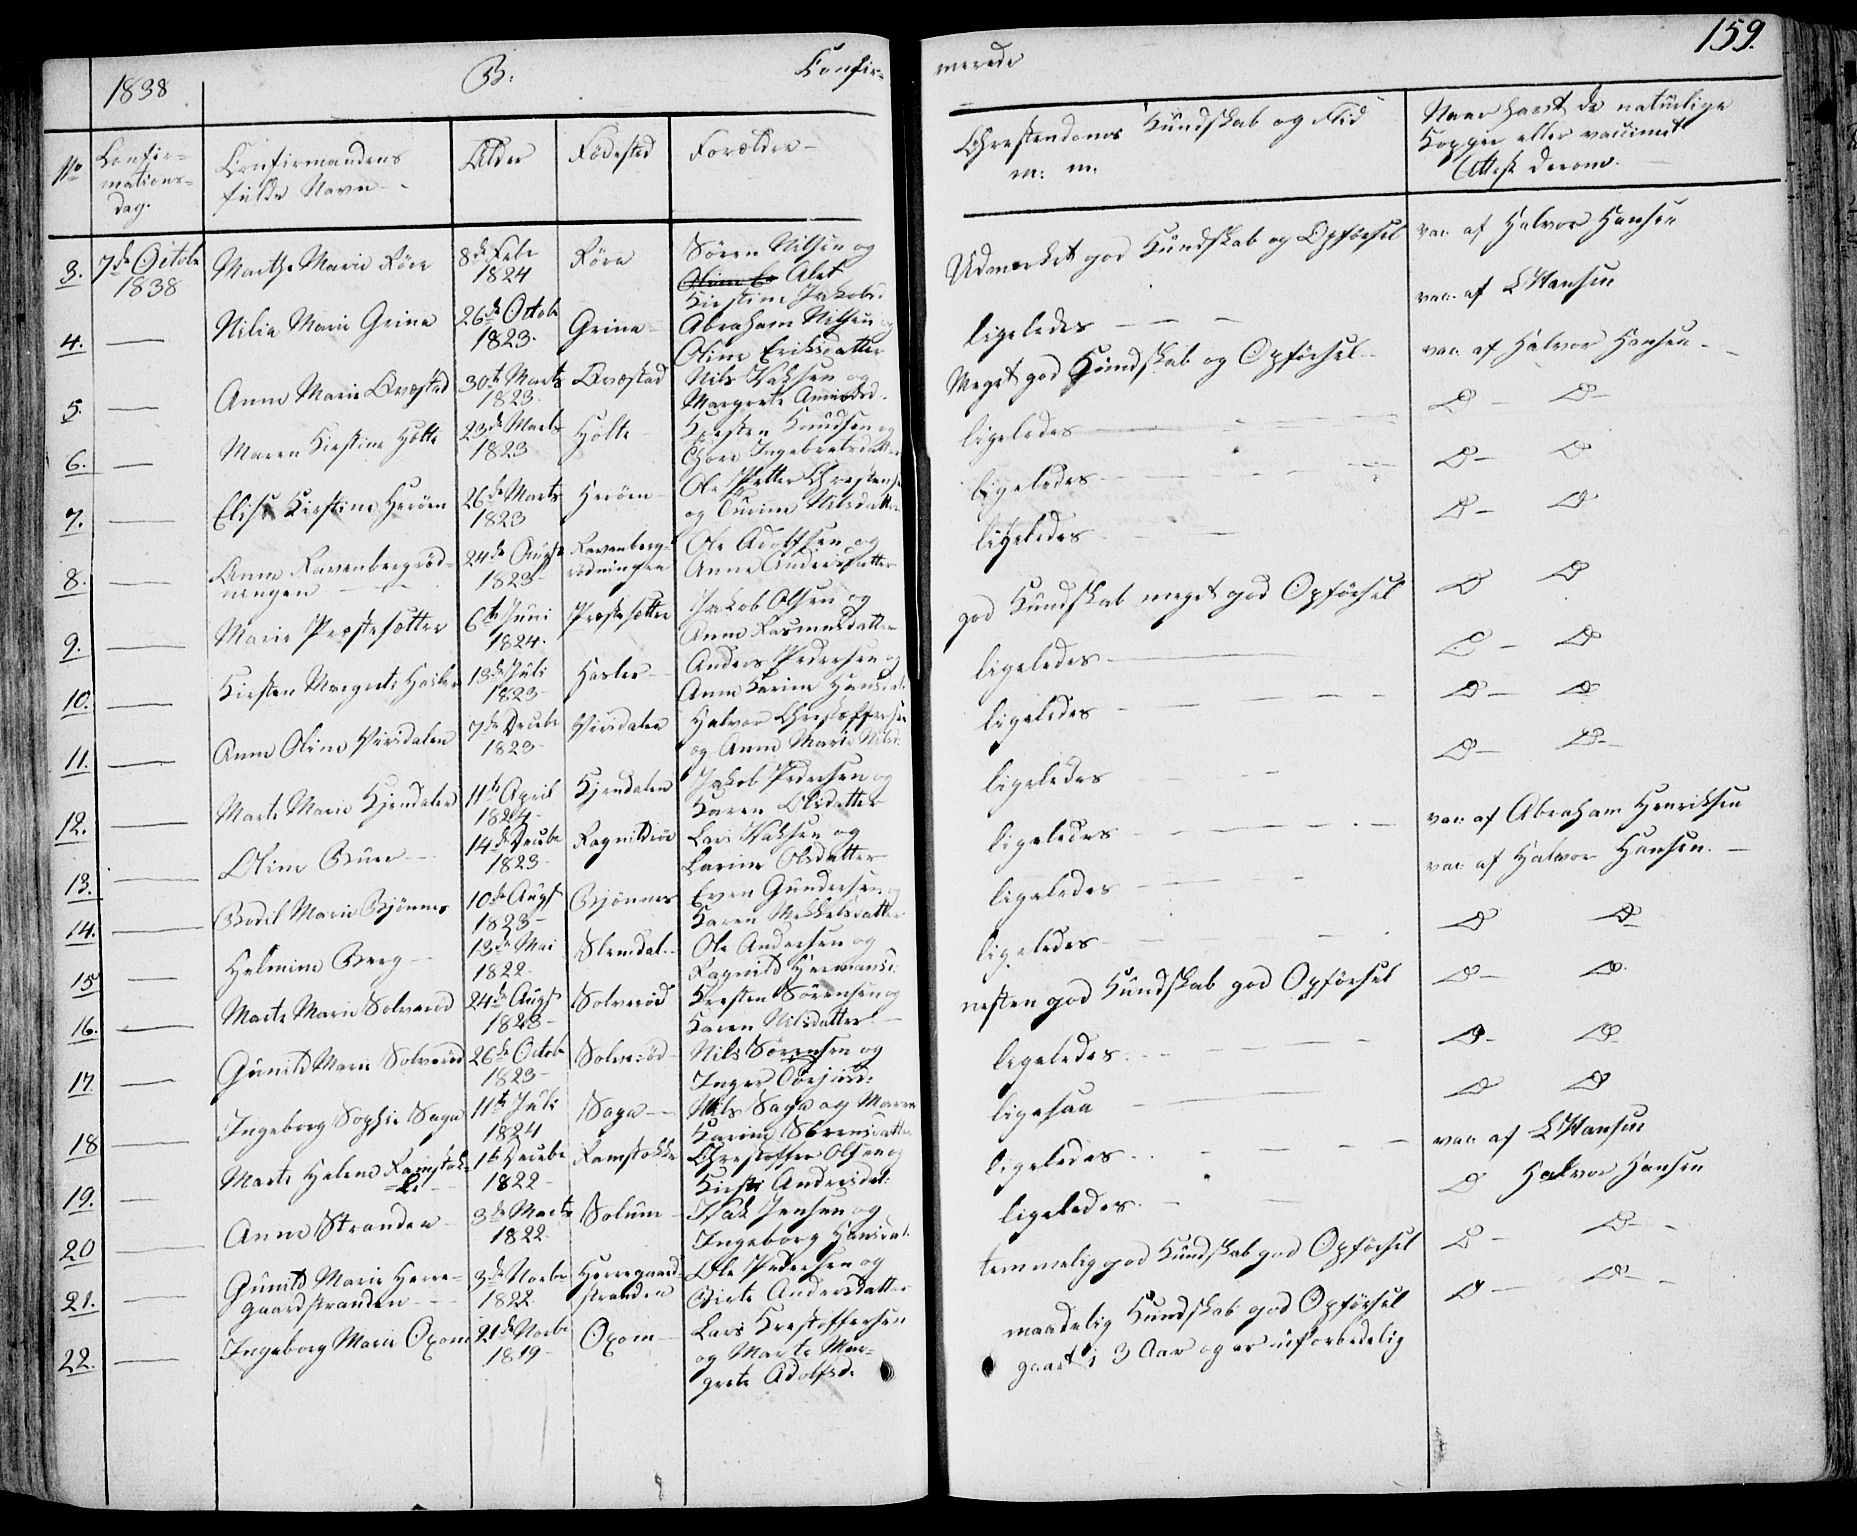 159.
1838 B: Confir=
merede
No
Confir=
mations=
dag.
Confirmandens
fulde Navn
Alder
Fødested
Forældre
Christendoms Kundskab og Flid
m: m.
Naar havt de naturlige
Kopper eller vaccineret
Attest derom.
3. 7de Octobr 1838 Marthe Marie Röra 8de Febr 1824 Röra Sören Nilsen og Alet Kirstine Jakobsd Udmærket god Kundskab og Opførsel vac. af Halvor Hansen
4. — Nilia Marie Grina 26de Octobr 1823. Grina Abraham Nilsen og Oline Eriksdatter ligeledes — — vac. af L Hansen
5. — Anne Marie Qvæstad 30te Marts 1823. Qvæstad Nils Isaksen og Margrete Meget god Kundskab og Opførsel vac. af Halvor Hansen
6. — Maren Kirstine Holte 23de Marts 1823 Holte Kirsten Knudsen og Thore Ingebretsdatter ligeledes D — D —
7. — Elise Kirstine Heröen 26de Marts 1823 Heröen Ole Petter Christensen og Nilsdatter ligeledes D — D
8. — Anne Ravenbergröd=ningen 24de Augst 1823 Ravenberg=rödningen Ole Adolfsen og Anne Andersdatter ligeledes D — D
9. — Marie Præstesætter 6te Juni 1824. Præstesætter Jakob Olsen og Anne Rasmusdatter god Kundskab meget god Opførsel D D
10. — Kirsten Margrete Hasler 13de Juli 1823 Hasler Anders Pedersen og Anne Karine Hansdat ligeledes D — D
11. — Anne Oline Versdalen 7de Decebr 1823 Versdalen Halvor Christoffersen og Anne Marie Nilsd: ligeledes D — D
12. — Marte Marie Kjendalen 11te April 1824 Kjendalen Jakob Pedersen og Karen Olsdatter ligeledes D — D —
13. — Oline Buer 14de Decebr 1823 Ragnildröe Lars Isaksen og Karine Olsdatter ligeledes vac. af Abraham Henriksen
14. — Bodil Marie Bjönnes 10de Augst 1823 Bjönnes Even Gundersen og Karen Mekkelsdatter ligeledes vac. af Halvor Hansen. —
15 — Helmine Berg 13de Mai 1822 Slemdal Ole Andersen og Ragnild Hermansd: ligeledes D D
16. — Marte Marie Solveröd 24de Augst 1823 Solveröd Kresten Sörensen og Karen Nilsdatter nesten god Kundskab god Opførsel D — D.
17. — Gunild Marie Solveröd 26de Octobr 1823 Solveröd Nils Sörensen og Inger ligeledes D — D
18 — Ingeborg Sophie Saga 11te Juli 1824 Saga — Nils Saga og Maren Karine Sörensdatter ligesaa D D
19. — Marte Helene Ramstok=ke 1te Decebr 1822 Ramstokke Christoffer Olsen og Kirsti Andersdat: ligeledes vac. af L Hansen
20 — Anne Stranden 3de Marts 1822 Solum Isak Jensen og Ingeborg Hansdat: ligeledes. D Halvor Hansen
21. — Gunild Marie Herre=gaardstranden 3de Novbr 1822 Herregaard=stranden Ole Pedersen og Berte Andersdatter temmelig god Kundskab god Opførsel D — D —
22. — Ingeborg Marie Oxom 21de Novbr 1819 Oxom Lars Kristoffersen og Marte Mar=grete Adolfsd. maadelig Kundskab god Opførsel gaaet i 3 Aar og er uforbederlig D — D —